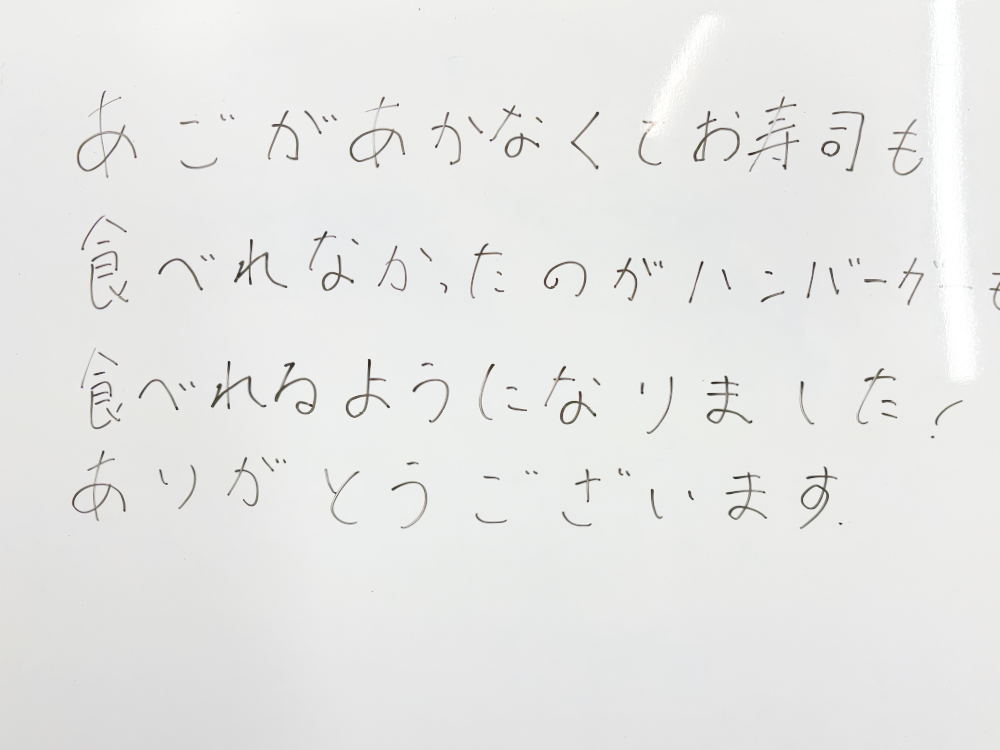 あごがあかなくてお寿司も
食べれなかったのがハンバーガーも
食べれるようになりました!
ありがとうございます.